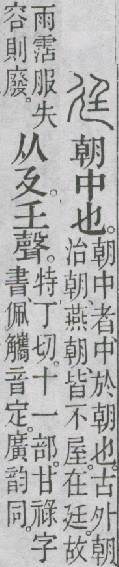 廷 朝中也。
朝中者、中於朝也。古外朝
治朝、燕朝、皆不屋。在廷。故
雨霑服失
容則廢。
从廴𡈼聲。
特丁切。十一部。甘祿字
書、佩觿音定。廣韵同。